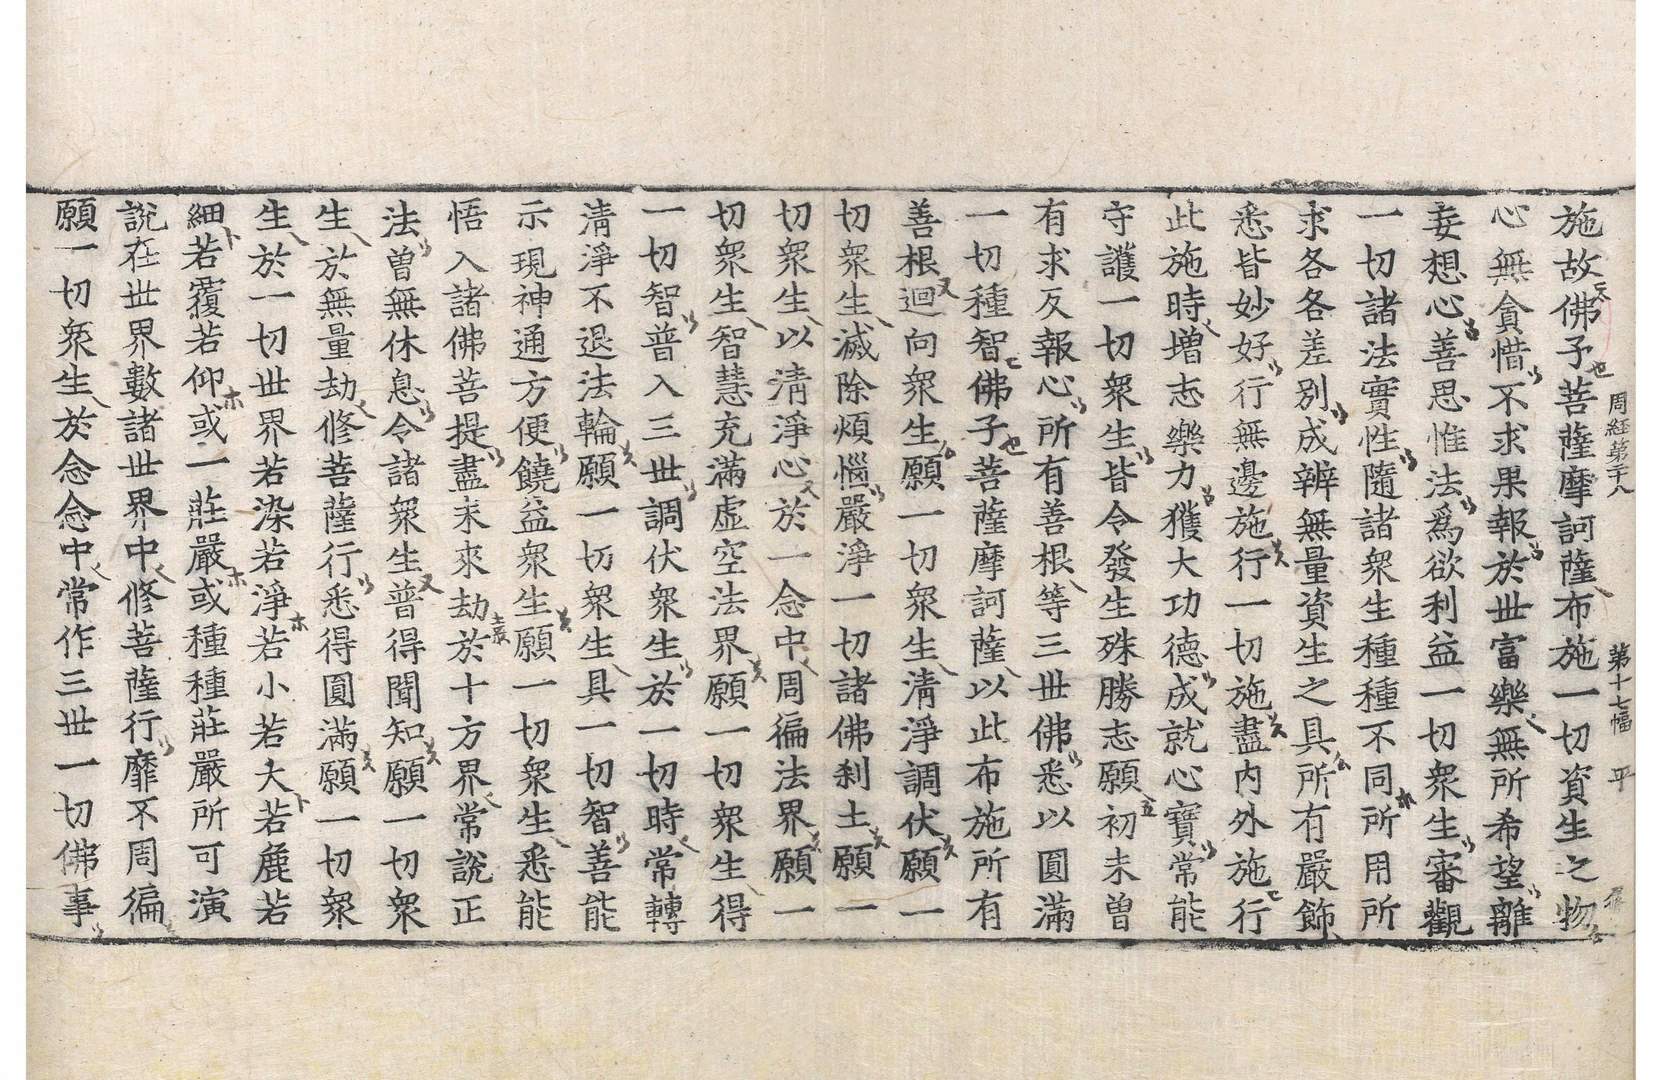 周經第二十八 第十七幅 平
施故佛子菩薩摩訶薩布施一切資生之物
心無貪惜不求果報於世富樂無所希望離
妄想心善思惟法爲欲利益一切衆生審觀
一切諸法實性隨諸衆生種種不同所用所
求各各差別成辨無量資生之具所有嚴飾
悉皆妙好行無邊施行一切施盡內外施行
此施時增志樂力獲大功德成就心寶常能
守護一切衆生皆令發生殊勝志願初未曾
有求反報心所有善根等三世佛悉以圓滿
一切種智佛子菩薩摩訶薩以此布施所有
善根迴向衆生願一切衆生清淨調伏願一
切衆生滅除煩惱嚴淨一切諸佛刹土願一
切衆生以清淨心於一念中周徧法界願一
切衆生智慧充滿虛空法界願一切衆生得
一切智普入三世調伏衆生於一切時常轉
清淨不退法輪願一切衆生具一切智善能
示現神通方便饒益衆生願一切衆生悉能
悟入諸佛菩提盡未來劫於十方界常說正
法曾無休息令諸衆生普得聞知願一切衆
生於無量劫修菩薩行悉得圓滿願一切衆
生於一切世界若染若淨若小若大若麁若
細若覆若仰或一莊嚴或種種莊嚴所可演
說在世界數諸世界中修菩薩行靡不周徧
願一切衆生於念念中常作三世一切佛事